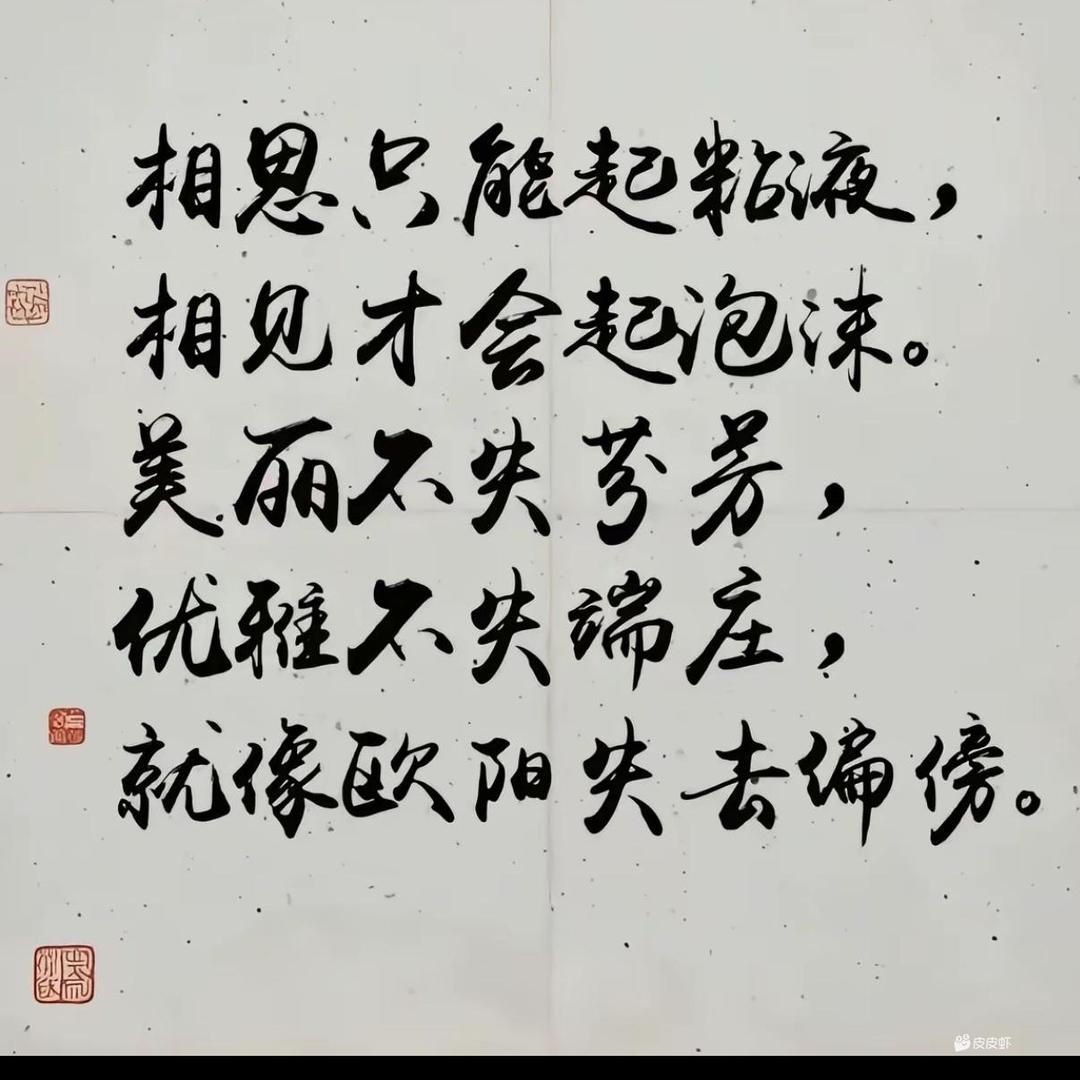 相思只能起粘液，
相见才会起泡沫。
美丽不失芬芳，
优雅不失端庄，
就像欧阳失去偏傍。
皮皮虾